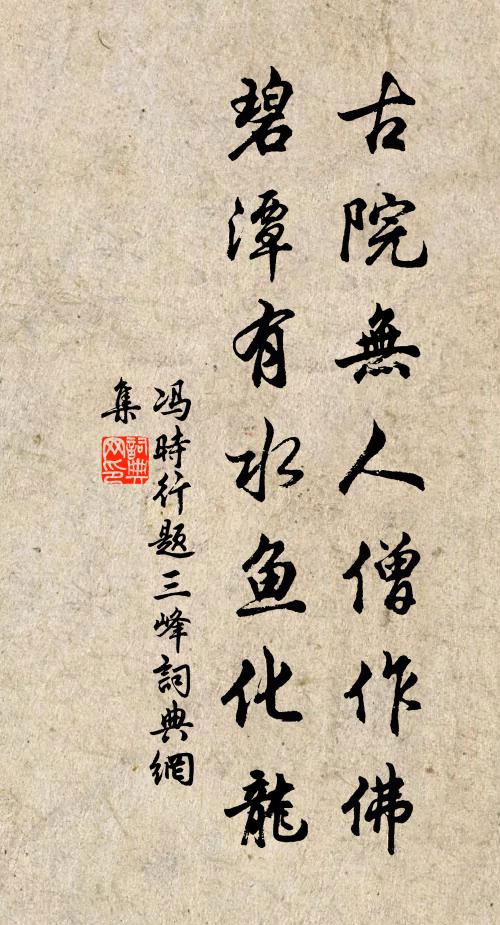 古院無人僧作佛
碧潭有水鱼化龍
冯時行题三峰詞典網
集
詞典
网印